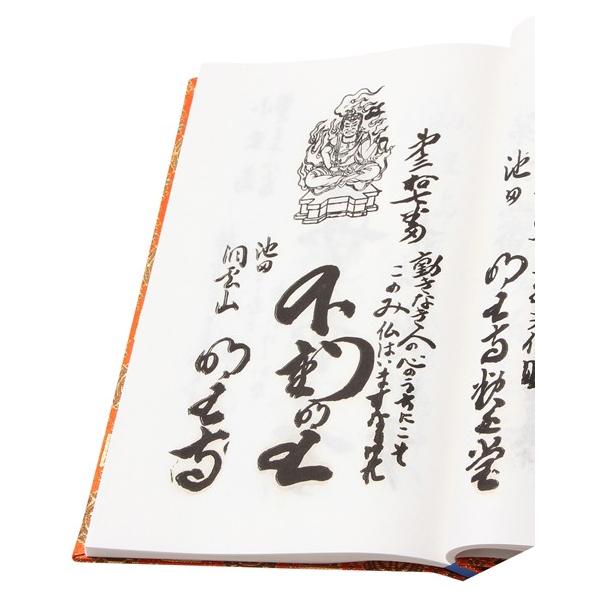 池田
明王寺 釈迦堂
第三拾七番
動きなき人の心のうちにこそ
このみ仏はいますなりけれ
不動明王
池田
山 明王寺